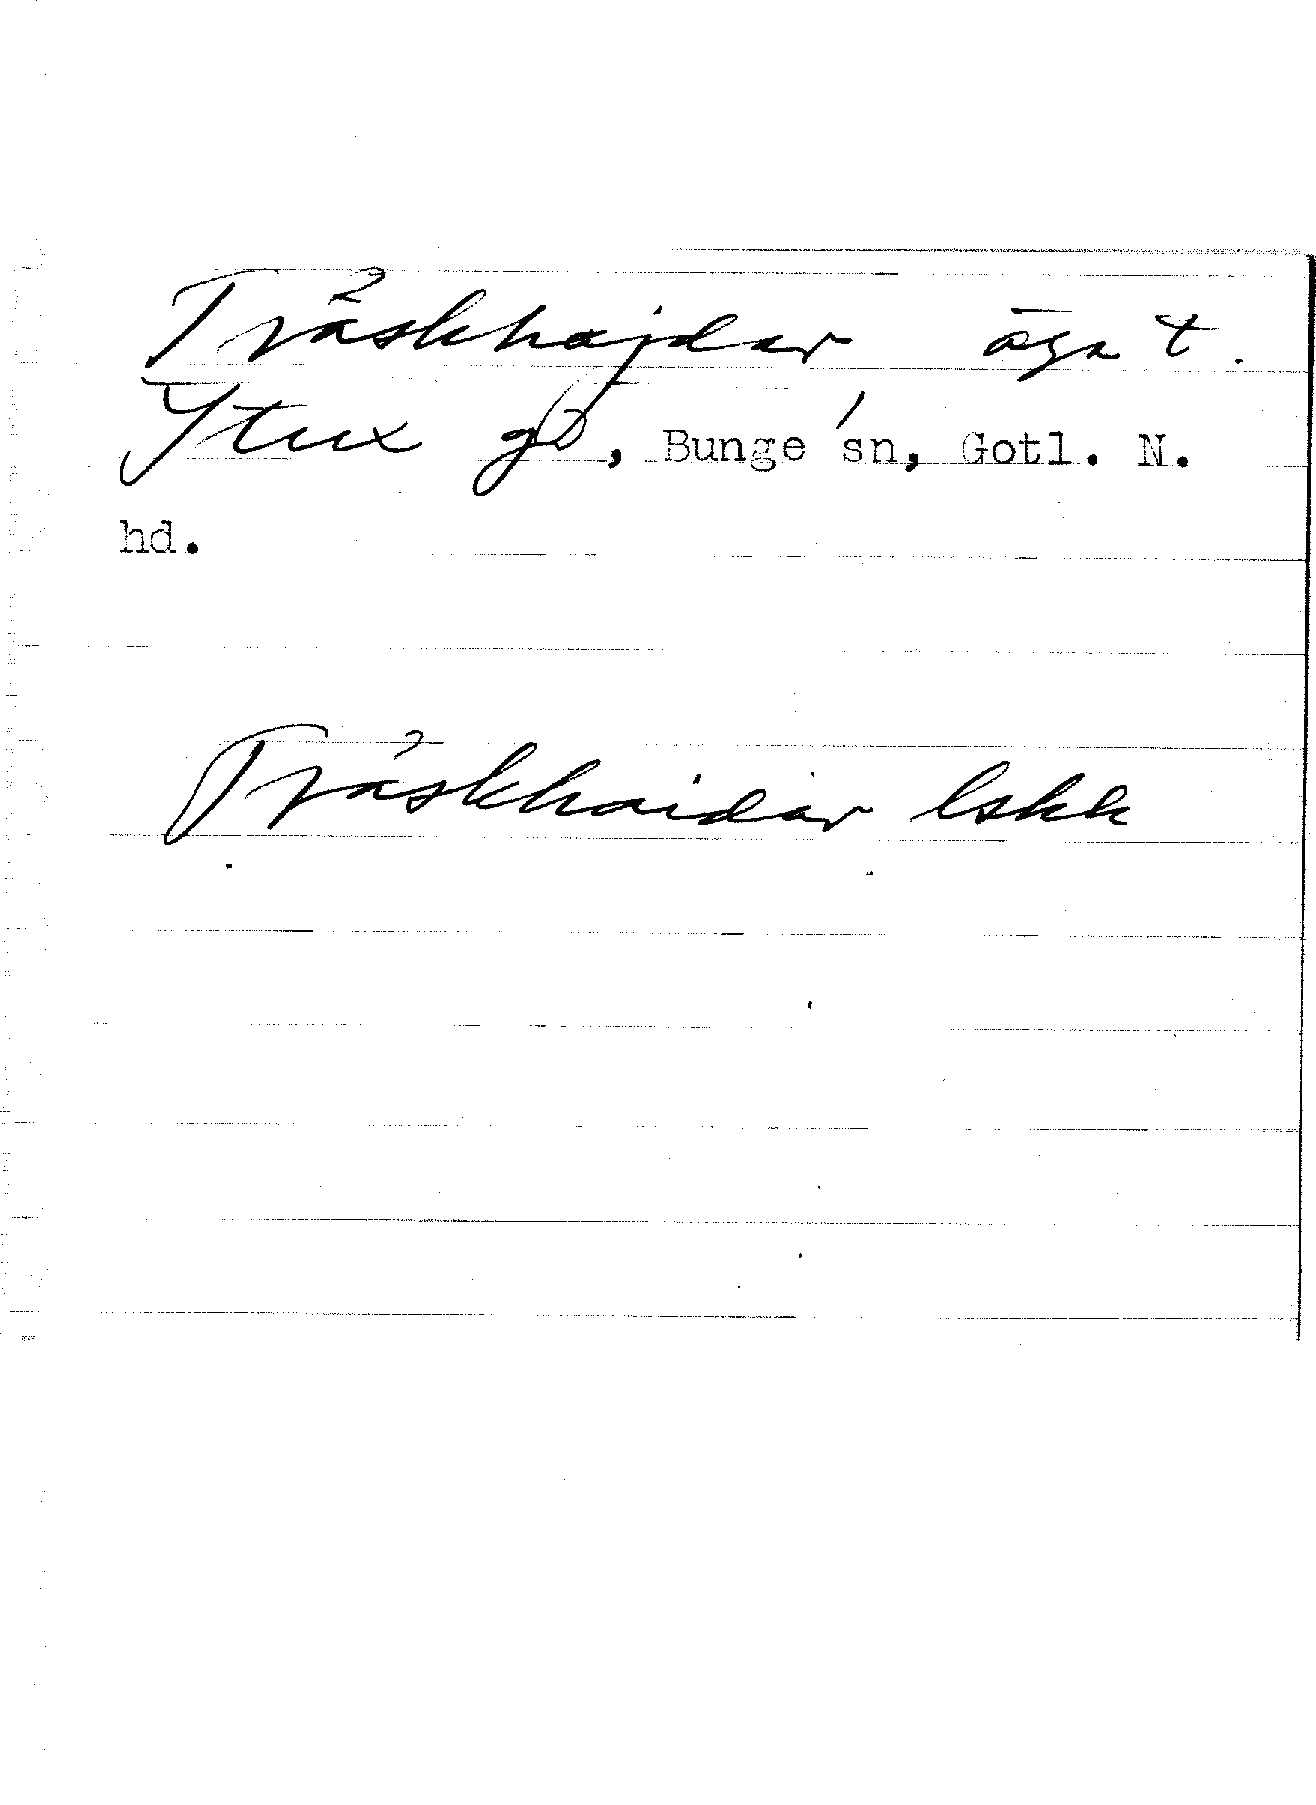 Träskhajdar äga t.
Ytux gd, Bunge sn, Gotl. N.
hd.
Träskhaidar lskk